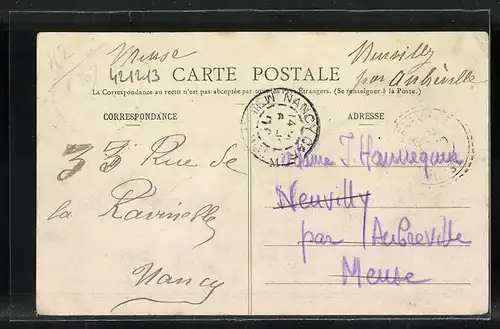 Meuse
421213
Neuvilly
par Aubréville
CARTE POSTALE
La Correspondance au recto n'est pas acceptée par tous les pays Étrangers. (Se renseigner à la Poste.)
CORRESPONDANCE
ADRESSE
NANCY
33 Rue de
la Ravinelle
Nancy
Madame J Hannequin
Neuvilly
par Aubréville
Meuse